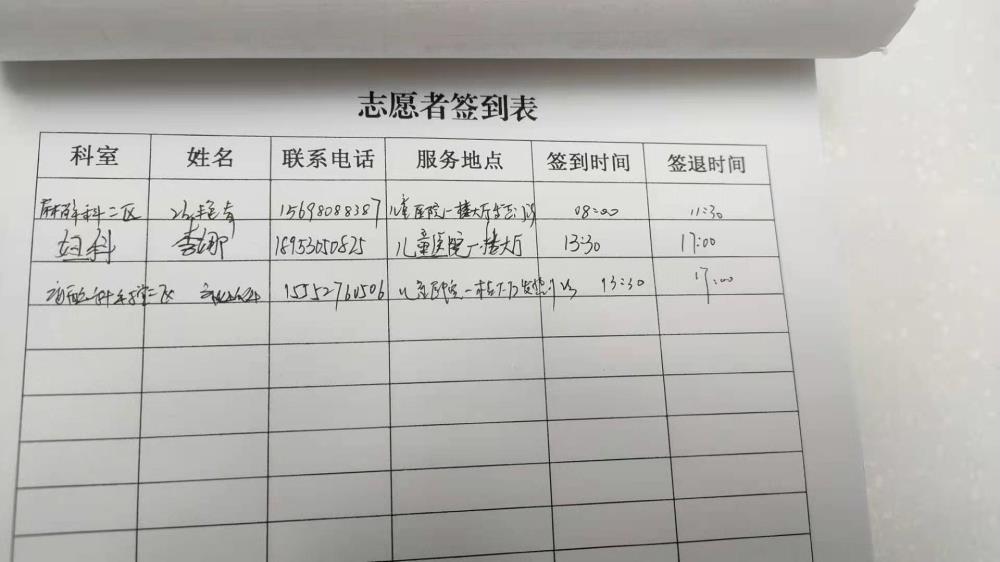 志愿者签到表
科室 姓名 联系电话 服务地点 签到时间 签退时间
麻醉科二区 艳奇 15698088387 儿童医院一楼大厅 08:00 11:30
妇科 李娜 18953050825 儿童医院一楼大厅 13:30 17:00
二区 15552760506 儿童医院一楼大厅发热门诊 13:30 17:00